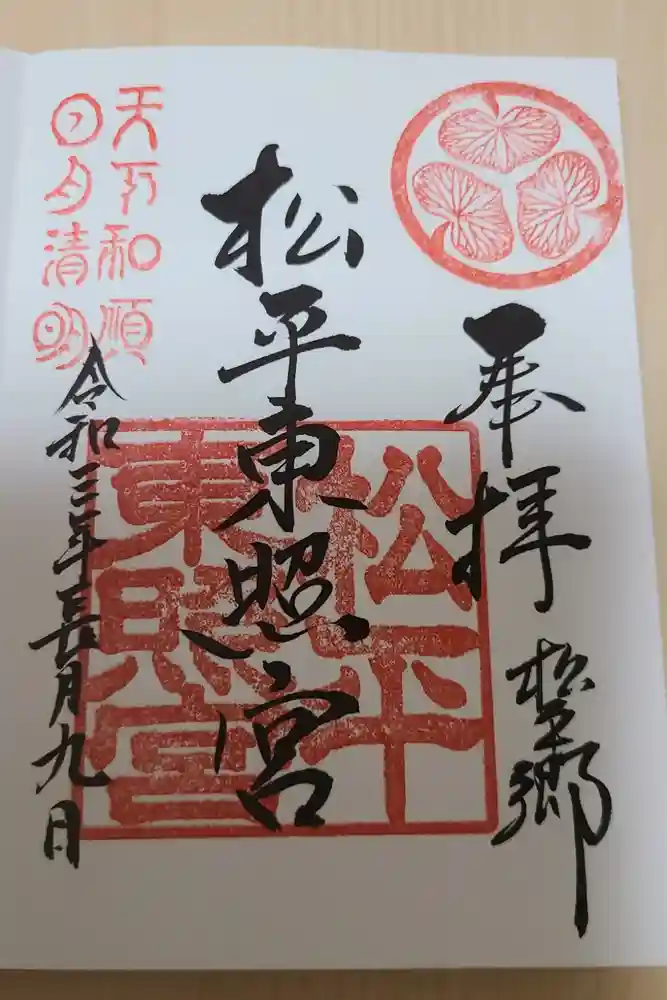 奉拝
松平郷
松平東照宮
松平
東照宮
令和三年長月九日
天下和順
日月清明